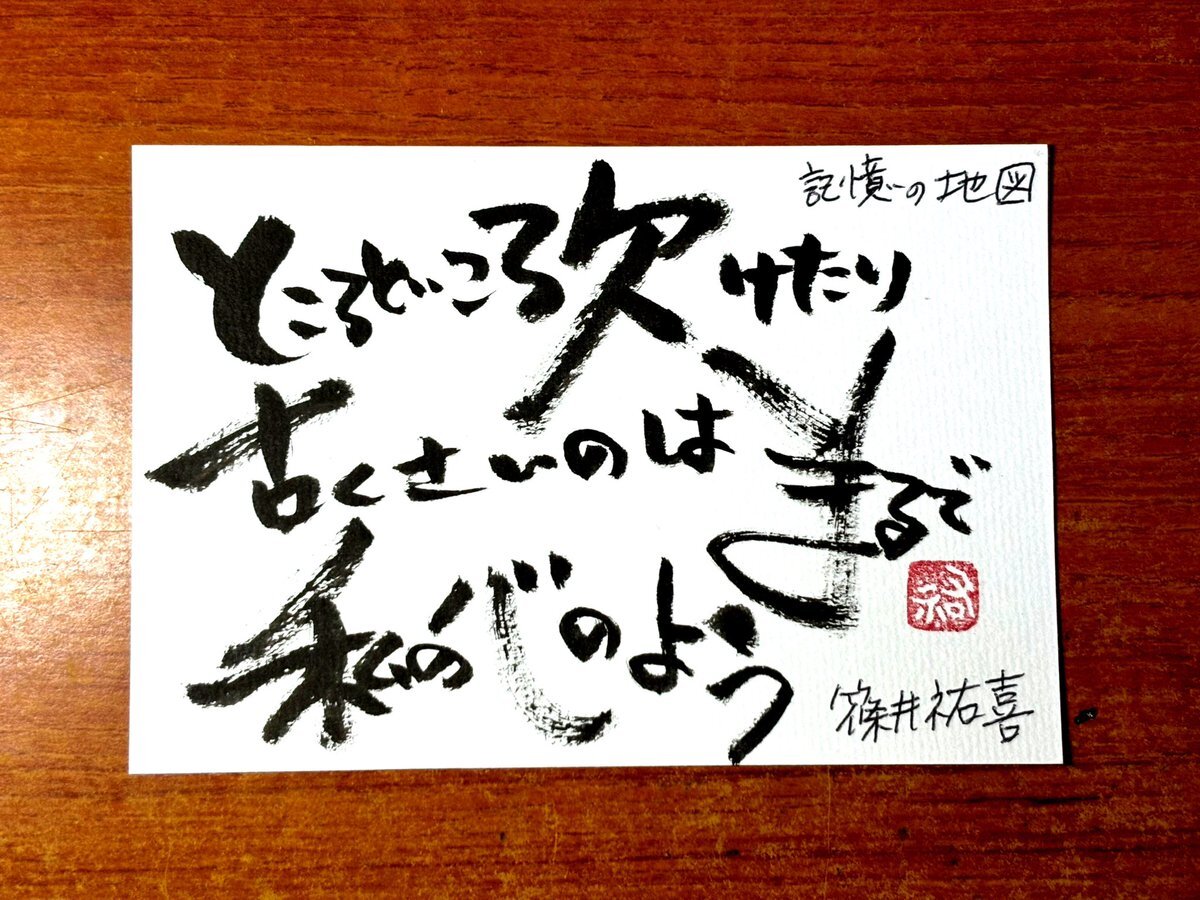 記憶の地図
ところどころ欠けたり
古くさいのはまるで
私の心のよう
篠井祐喜